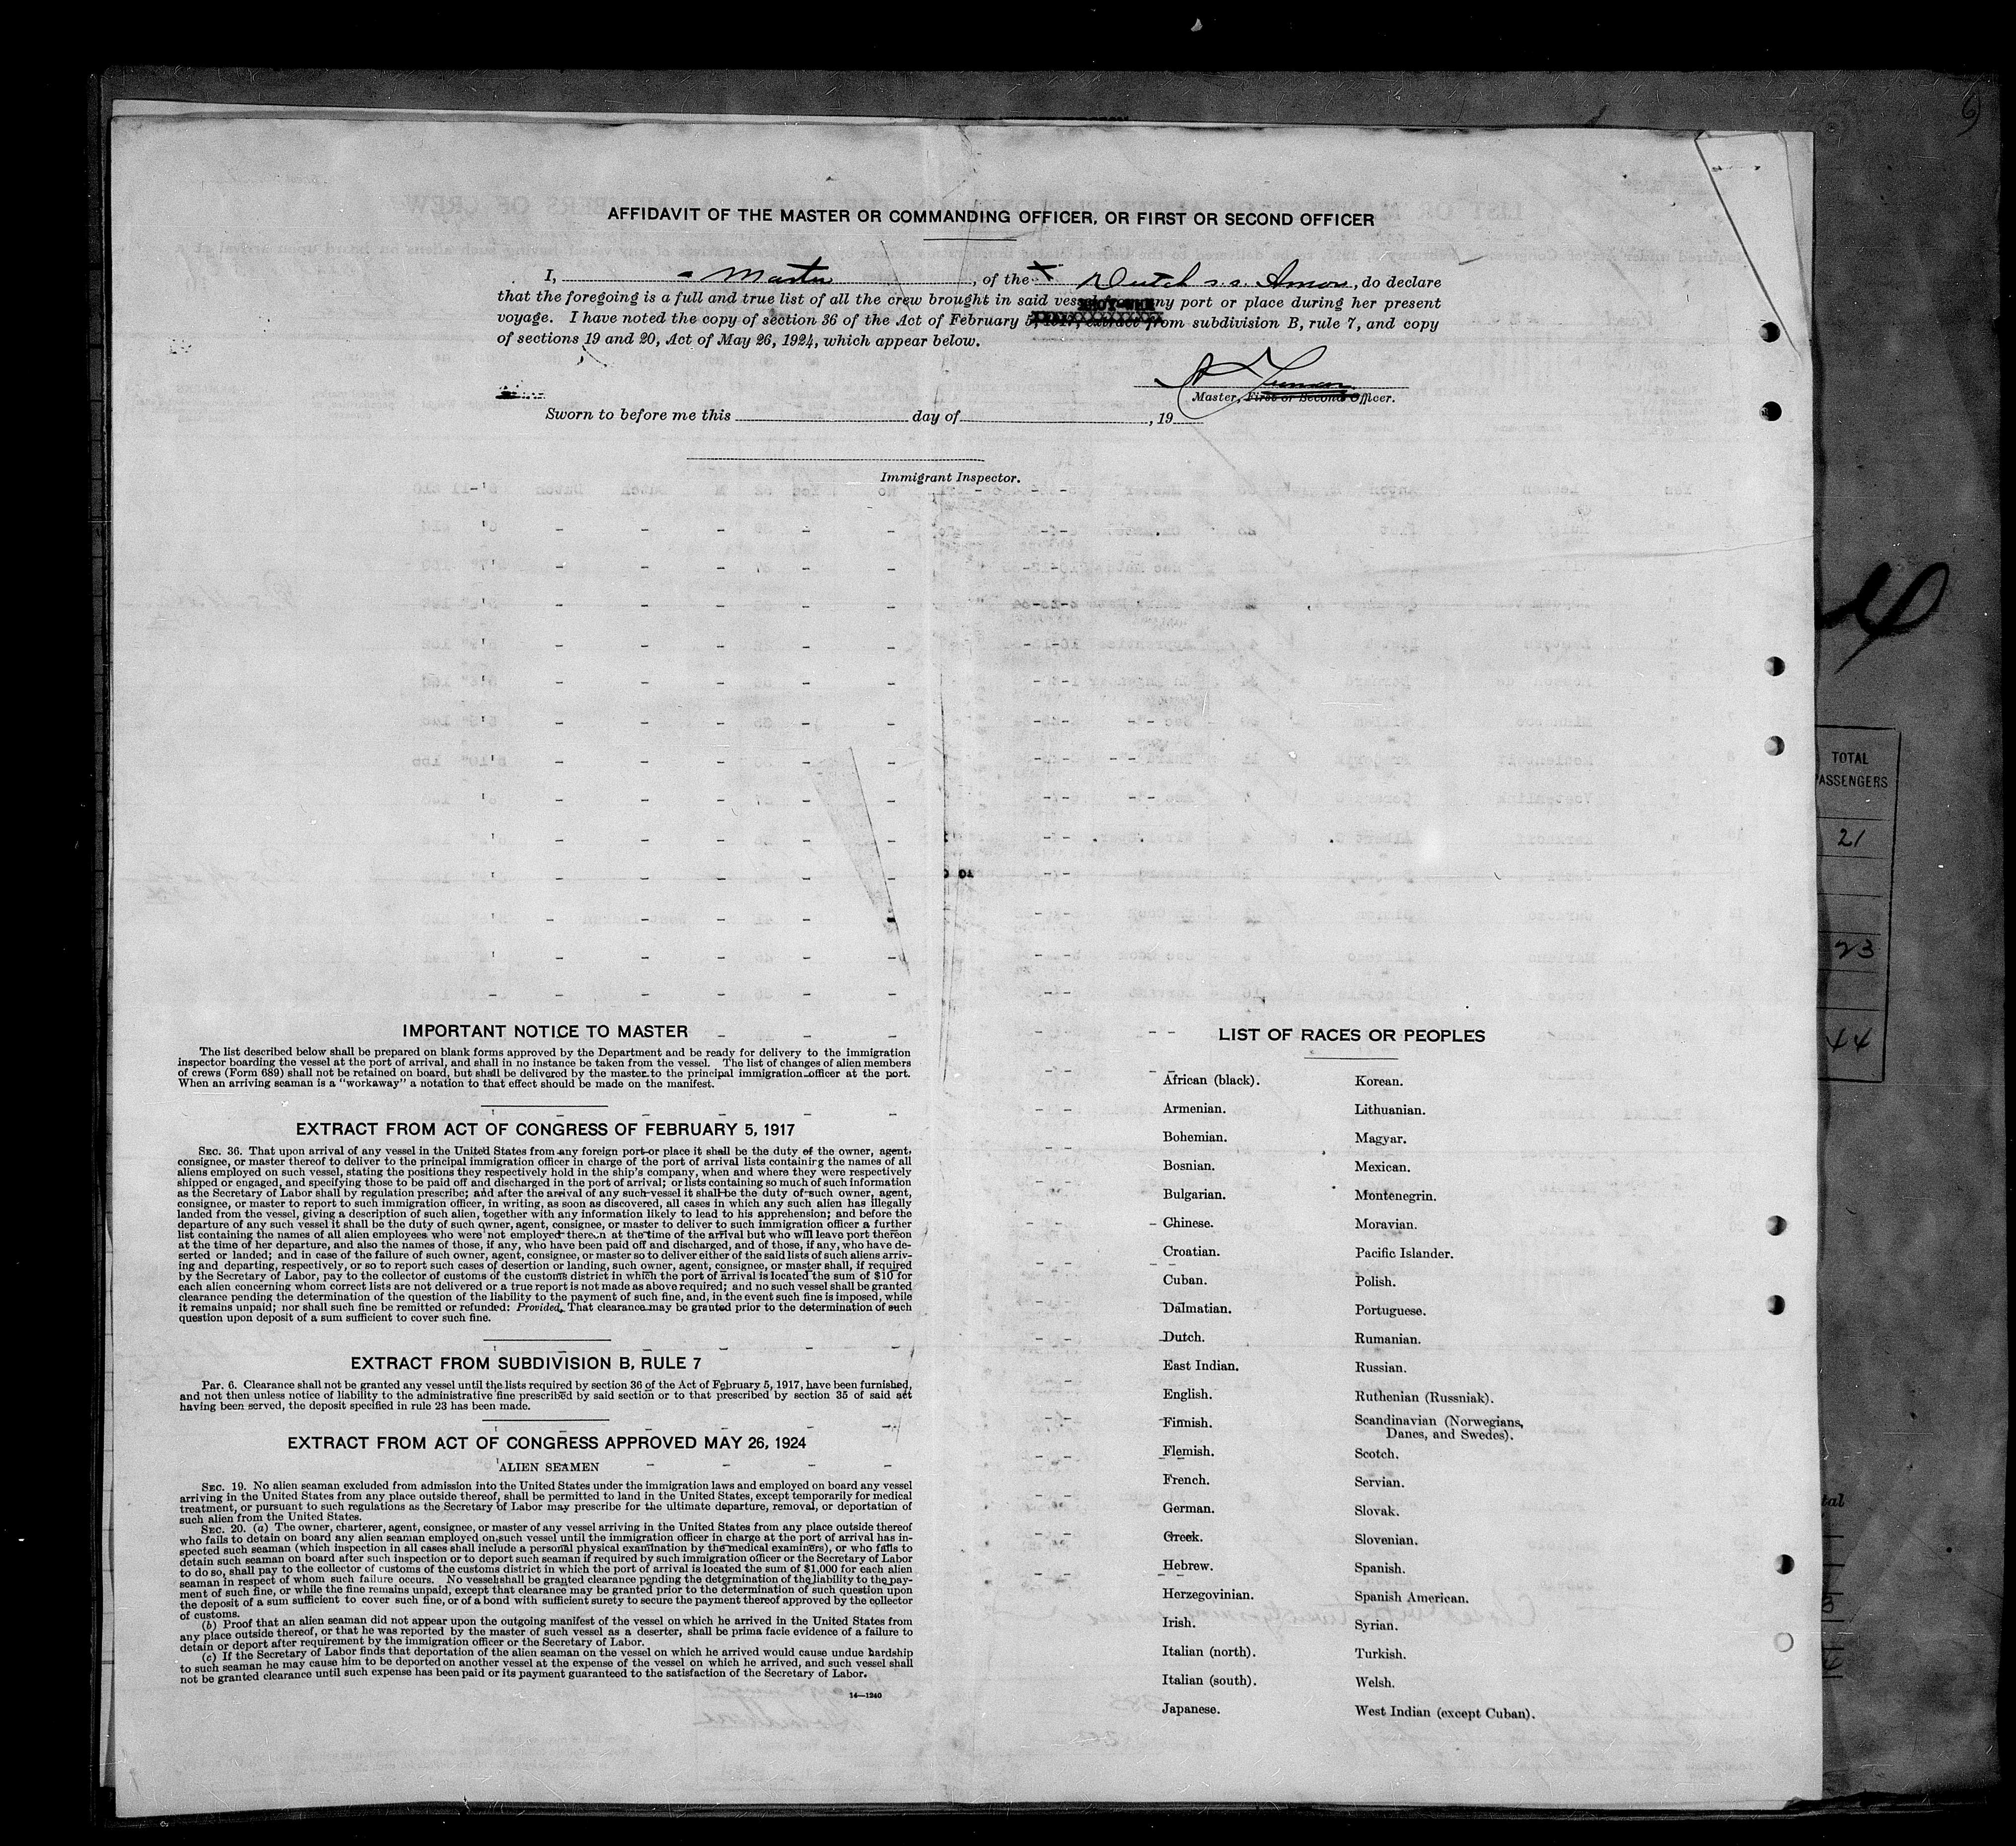 AFFIDAVIT OF THE MASTER OR COMMANDING OFFICER, OR FIRST OR SECOND OFFICER
I, Master, of the Dutch s s. Amor, do declare
that the foregoing is a full and true list of all the crew brought in said vessel from any port or place during her present
voyage. I have noted the copy of section 36 of the Act of February 5, 1917, extract from subdivision B, rule 7, and copy
of sections 19 and 20, Act of May 26, 1924, which appear below.
Master, First or Second Officer.
Sworn to before me this day of , 19
Immigrant Inspector.
IMPORTANT NOTICE TO MASTER
The list described below shall be prepared on blank forms approved by the Department and be ready for delivery to the immigration
inspector boarding the vessel at the port of arrival, and shall in no instance be taken from the vessel. The list of changes of alien members
of crews (Form 689) shall not be retained on board, but shall be delivered by the master to the principal immigration officer at the port.
When an arriving seaman is a "workaway" a notation to that effect should be made on the manifest.
EXTRACT FROM ACT OF CONGRESS OF FEBRUARY 5, 1917
SEC. 36. That upon arrival of any vessel in the United States from any foreign port or place it shall be the duty of the owner, agent,
consignee, or master thereof to deliver to the principal immigration officer in charge of the port of arrival lists containing the names of all
aliens employed on such vessel, stating the positions they respectively hold in the ship's company, when and where they were respectively
shipped or engaged, and specifying those to be paid off and discharged in the port of arrival; or lists containing so much of such information
as the Secretary of Labor shall by regulation prescribe; and after the arrival of any such vessel it shall be the duty of such owner, agent,
consignee, or master to report to such immigration officer, in writing, as soon as discovered, all cases in which any such alien has illegally
landed from the vessel, giving a description of such alien, together with any information likely to lead to his apprehension; and before the
departure of any such vessel it shall be the duty of such owner, agent, consignee, or master to deliver to such immigration officer a further
list containing the names of all alien employees who were not employed thereon at the time of the arrival but who will leave port thereon
at the time of her departure, and also the names of those, if any, who have been paid off and discharged, and of those, if any, who have de-
serted or landed; and in case of the failure of such owner, agent, consignee, or master so to deliver either of the said lists of such aliens arriv-
ing and departing, respectively, or so to report such cases of desertion or landing, such owner, agent, consignee, or master shall, if required
by the Secretary of Labor, pay to the collector of customs of the customs district in which the port of arrival is located the sum of $10 for
each alien concerning whom correct lists are not delivered or a true report is not made as above required; and no such vessel shall be granted
clearance pending the determination of the question of the liability to the payment of such fine, and, in the event such fine is imposed, while
it remains unpaid; nor shall such fine be remitted or refunded: Provided, That clearance may be granted prior to the determination of such
question upon deposit of a sum sufficient to cover such fine.
EXTRACT FROM SUBDIVISION B, RULE 7
Par. 6. Clearance shall not be granted any vessel until the lists required by section 36 of the Act of February 5, 1917, have been furnished,
and not then unless notice of liability to the administrative fine prescribed by said section or to that prescribed by section 35 of said act
having been served, the deposit specified in rule 23 has been made.
EXTRACT FROM ACT OF CONGRESS APPROVED MAY 26, 1924
ALIEN SEAMEN
SEC. 19. No alien seaman excluded from admission into the United States under the immigration laws and employed on board any vessel
arriving in the United States from any place outside thereof, shall be permitted to land in the United States, except temporarily for medical
treatment, or pursuant to such regulations as the Secretary of Labor may prescribe for the ultimate departure, removal, or deportation of
such alien from the United States.
SEC. 20. (a) The owner, charterer, agent, consignee, or master of any vessel arriving in the United States from any place outside thereof
who fails to detain on board any alien seaman employed on such vessel until the immigration officer in charge at the port of arrival has in-
spected such seaman (which inspection in all cases shall include a personal physical examination by the medical examiners), or who fails to
detain such seaman on board after such inspection or to deport such seaman if required by such immigration officer or the Secretary of Labor
to do so, shall pay to the collector of customs of the customs district in which the port of arrival is located the sum of $1,000 for each alien
seaman in respect of whom such failure occurs. No vessel shall be granted clearance pending the determination of the liability to the pay-
ment of such fine, or while the fine remains unpaid, except that clearance may be granted prior to the determination of such question upon
the deposit of a sum sufficient to cover such fine, or of a bond with sufficient surety to secure the payment thereof approved by the collector
of customs.
(b) Proof that an alien seaman did not appear upon the outgoing manifest of the vessel on which he arrived in the United States from
any place outside thereof, or that he was reported by the master of such vessel as a deserter, shall be prima facie evidence of a failure to
detain or deport after requirement by the immigration officer or the Secretary of Labor.
(c) If the Secretary of Labor finds that deportation of the alien seaman on the vessel on which he arrived would cause undue hardship
to such seaman he may cause him to be deported on another vessel at the expense of the vessel on which he arrived, and such vessel shall
not be granted clearance until such expense has been paid or its payment guaranteed to the satisfaction of the Secretary of Labor.
14—1240
LIST OF RACES OR PEOPLES
African (black).
Armenian.
Bohemian.
Bosnian.
Bulgarian.
Chinese.
Croatian.
Cuban.
Dalmatian.
Dutch.
East Indian.
English.
Finnish.
Flemish.
French.
German.
Greek.
Hebrew.
Herzegovinian.
Irish.
Italian (north).
Italian (south).
Japanese.
Korean.
Lithuanian.
Magyar.
Mexican.
Montenegrin.
Moravian.
Pacific Islander.
Polish.
Portuguese.
Rumanian.
Russian.
Ruthenian (Russniak).
Scandinavian (Norwegians,
Danes, and Swedes).
Scotch.
Servian.
Slovak.
Slovenian.
Spanish.
Spanish American.
Syrian.
Turkish.
Welsh.
West Indian (except Cuban).
TOTAL
PASSENGERS
21
23
44